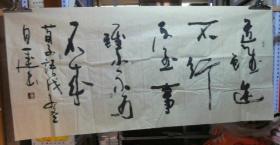 道雖迩
不行
不至事
雖小不為
不成
荀子語戊戌